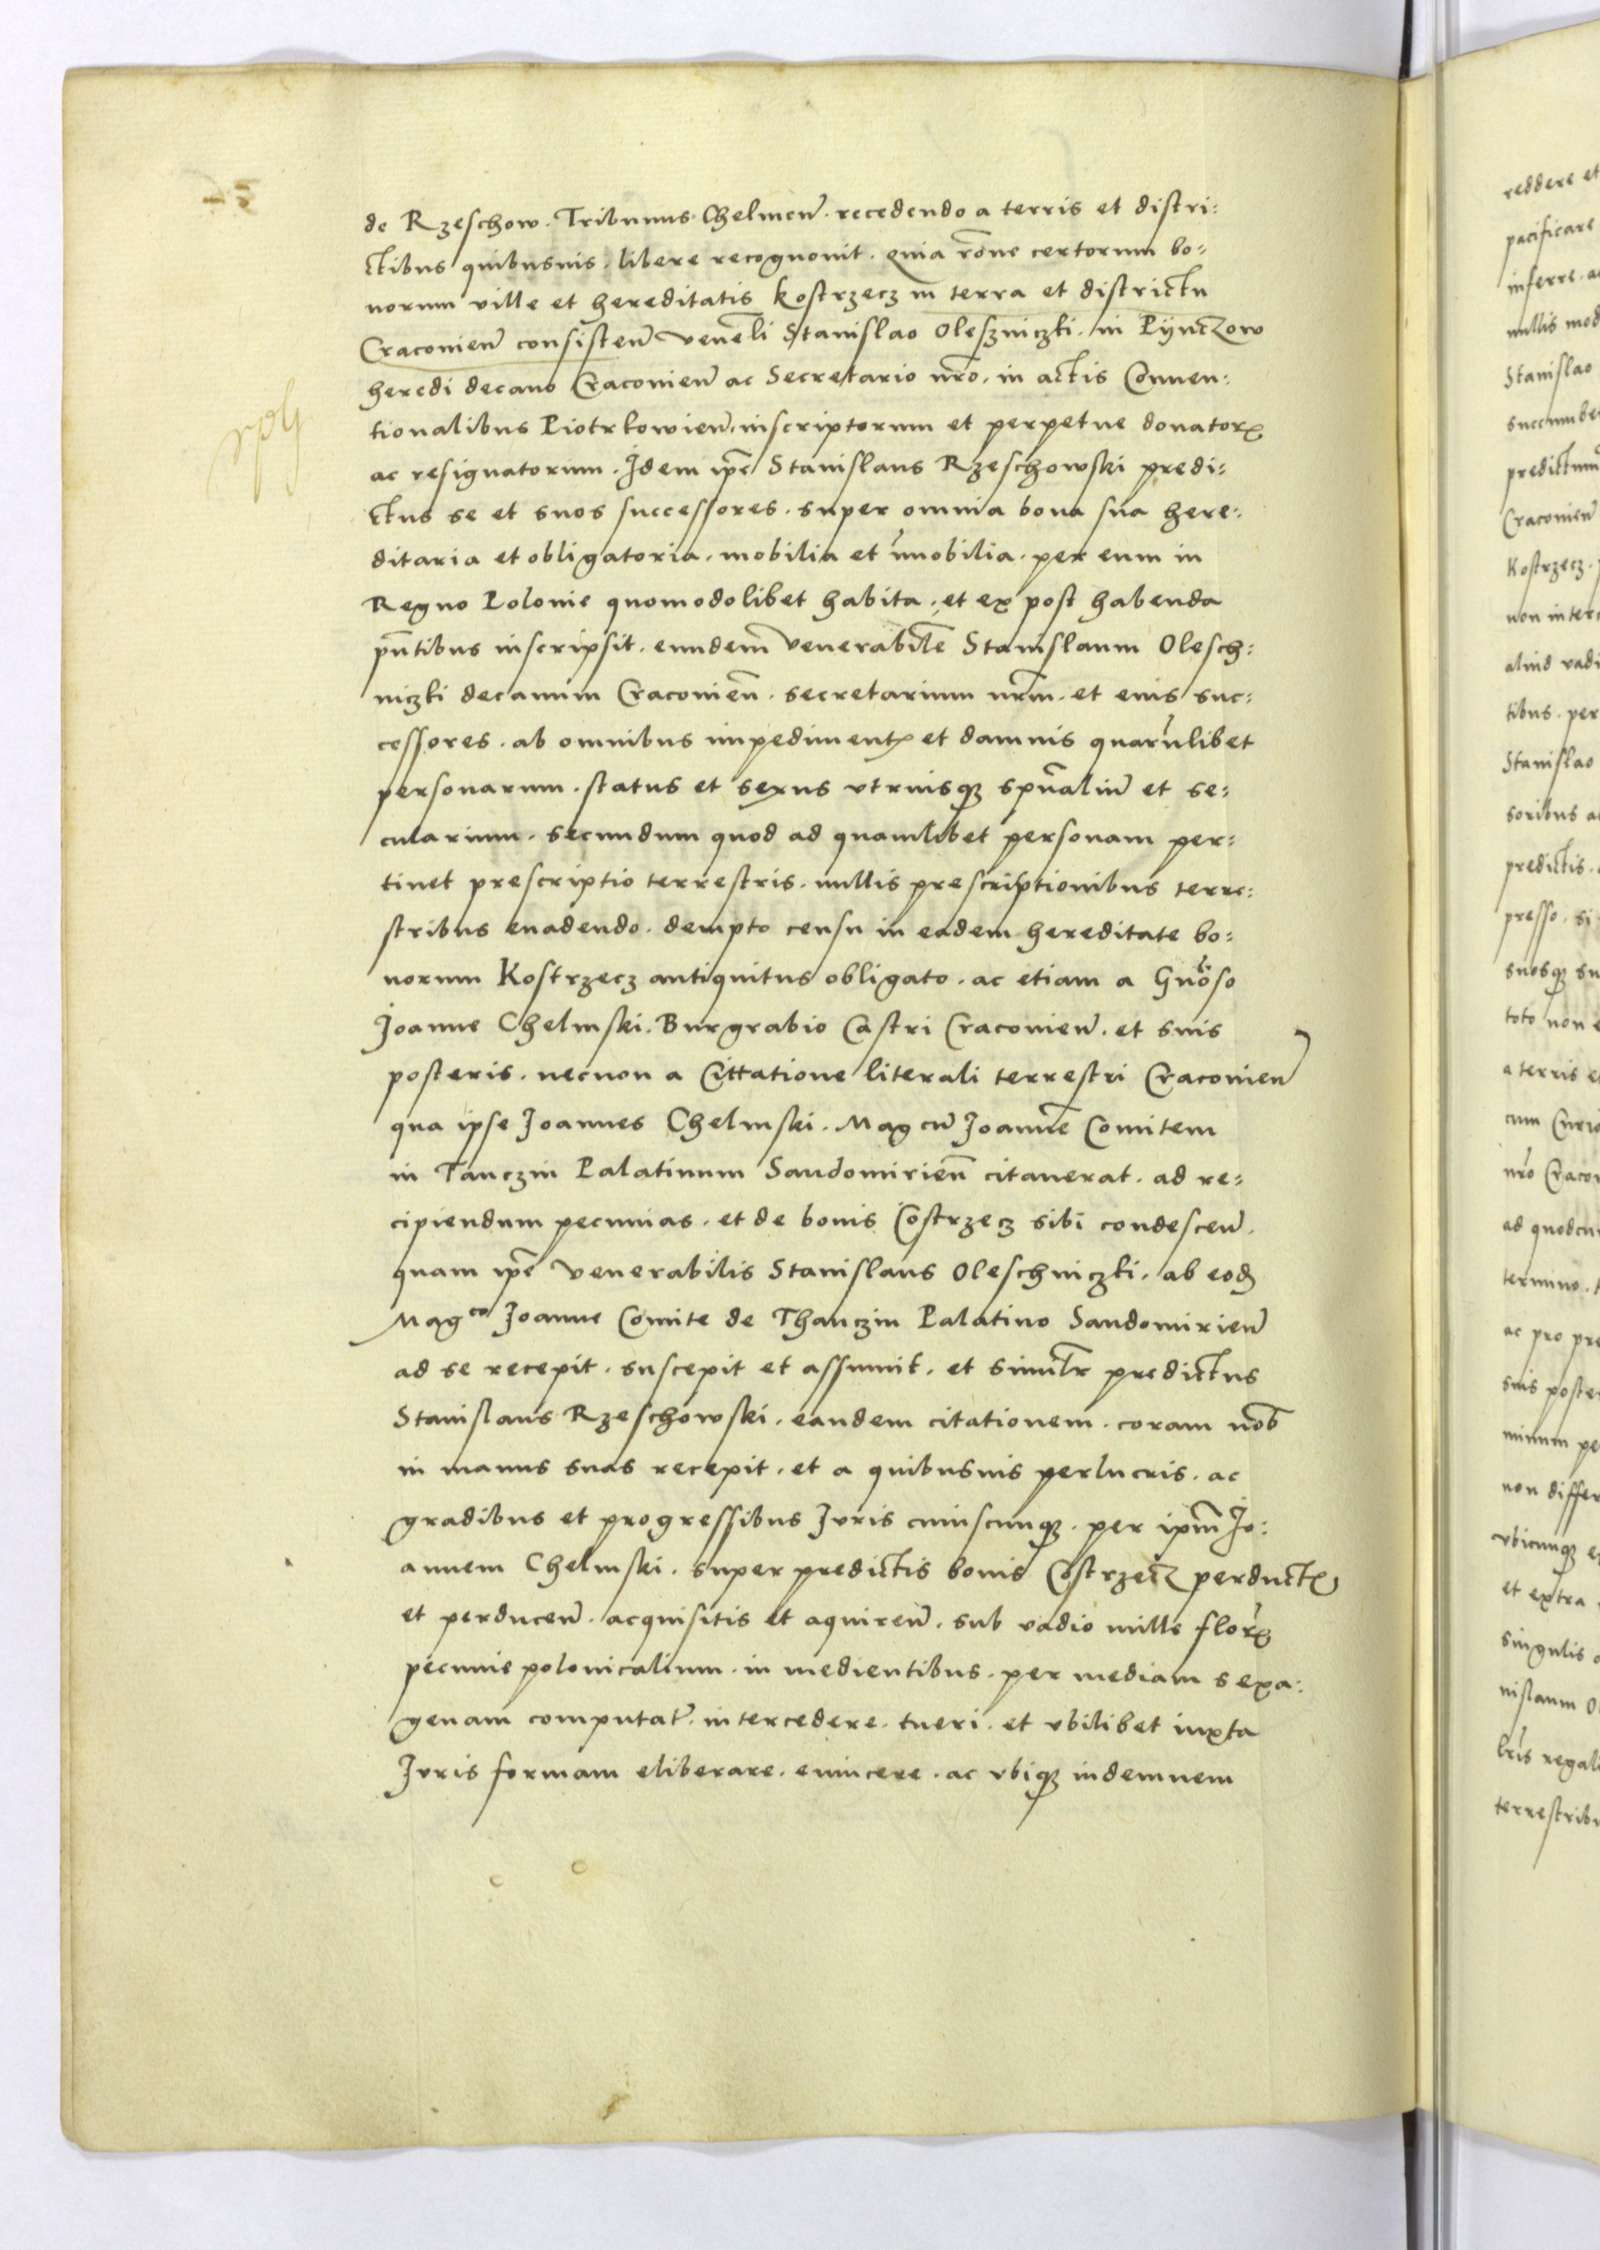 de Rzeschow. Tribunus Chelmen̄. recedendo a terris et distri:
ctibus quibusuis. libere recognouit. quia rōne certorum bo:
norum ville et hereditatis Kostrzecz in terra et districtu
Cracouien̄ consisten̄ Venēli Stanislao Oleszniczki. in Pijnczow
heredi decano Cracouien̄ ac Secretario nr̄o. in actis Conuen:
tionalibus Piotrkowien̄. inscriptorum et perpetue donatorꝝ
ac resignatorum. Idem ip̄e Stanislaus Rzeschowski predi:
ctus se et suos successores. super omnia bona sua here:
ditaria et obligatoria. mobilia et im̄obilia. per eum in
Regno Polonie quomodolibet habita. et ex post habenda
pn̄tibus inscripsit. eundem̄ Venerabilē Stanislaum Olesch:
niczki decanum Cracouien̄. secretarium nrm̄. et eius suc:
cessores. ab omnibus impedimentꝭ et damnis quarūlibet
personarum. status et sexus vtriusqꝫ spūaliū et se:
cularium. secundum quod ad quamlibet personam per:
tinet prescriptio terrestris. nullis prescriptionibus terre:
stribus euadendo. dempto censu in eadem hereditate bo:
norum Kostrzecz antiquitus obligato. ac etiam a Gn̄oso
Joanne Chelmski. Burgrabio Castri Cracouien̄. et suis
posteris. necnon a Cittatione literali terrestri Cracouien̄
qua ipse Joannes Chelmski. Magcū Joannē Comitem
in Tanczin Palatinum Sandomirien̄ citauerat. ad re:
cipiendum pecunias. et de bonis Costrzecz sibi condescen̄.
quam ip̄e Venerabilis Stanislaus Oleschniczki. ab eod̄
Magco Joanne Comite de Thanczin Palatino Sandomirien̄
ad se recepit. suscepit et assumit. et simil̄r predictus
Stanislaus Rzeschowski. eandem citationem. coram nob̄
in manus suas recepit. et a quibusuis perlucris. ac
gradibus et progressibus Juris cuiuscunqꝫ. per ipm̄ Jo:
annem Chelmski. super predictis bonis Costrzecz perductꝭ
et perducen̄. acquisitis et aquiren̄. sub vadio mille florꝝ
pecunie polonicalium. in medientibus. per mediam sexa:
genam computat̄. intercedere. tueri. et vbilibet iuxta
Juris formam eliberare. euincere. ac vbiqꝫ indemnem
reddere et
pacificare
inferre. a
nullis mod
Stanislao
succumbe
predictum
Cracouien̄
Kostrzecz.
non inter
aliud vadi
tibus. per
Stanislao
soribus a
predictis.
presso. si
suosqꝫ su
toto non e
a terris e
cum
nr̄o Craco
ad quodcu
termino.
ac pro pre
suis poste
minum pe
non differ
vbicunqꝫ e
et extra
singulis
nislaum O
lr̄is regal
terrestrib